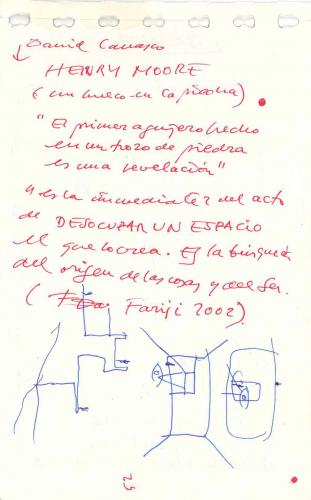 David Carrasco
HENRY MOORE
(un hueco en la piedra)
"El primer agujero hecho
en un trozo de piedra
es una revelación"
"es la inmediatez del acto
de DESOCUPAR UN ESPACIO
el que lo crea. Es la búsqueda
del origen de las cosas y del ser.
( Fariji 2002).
25